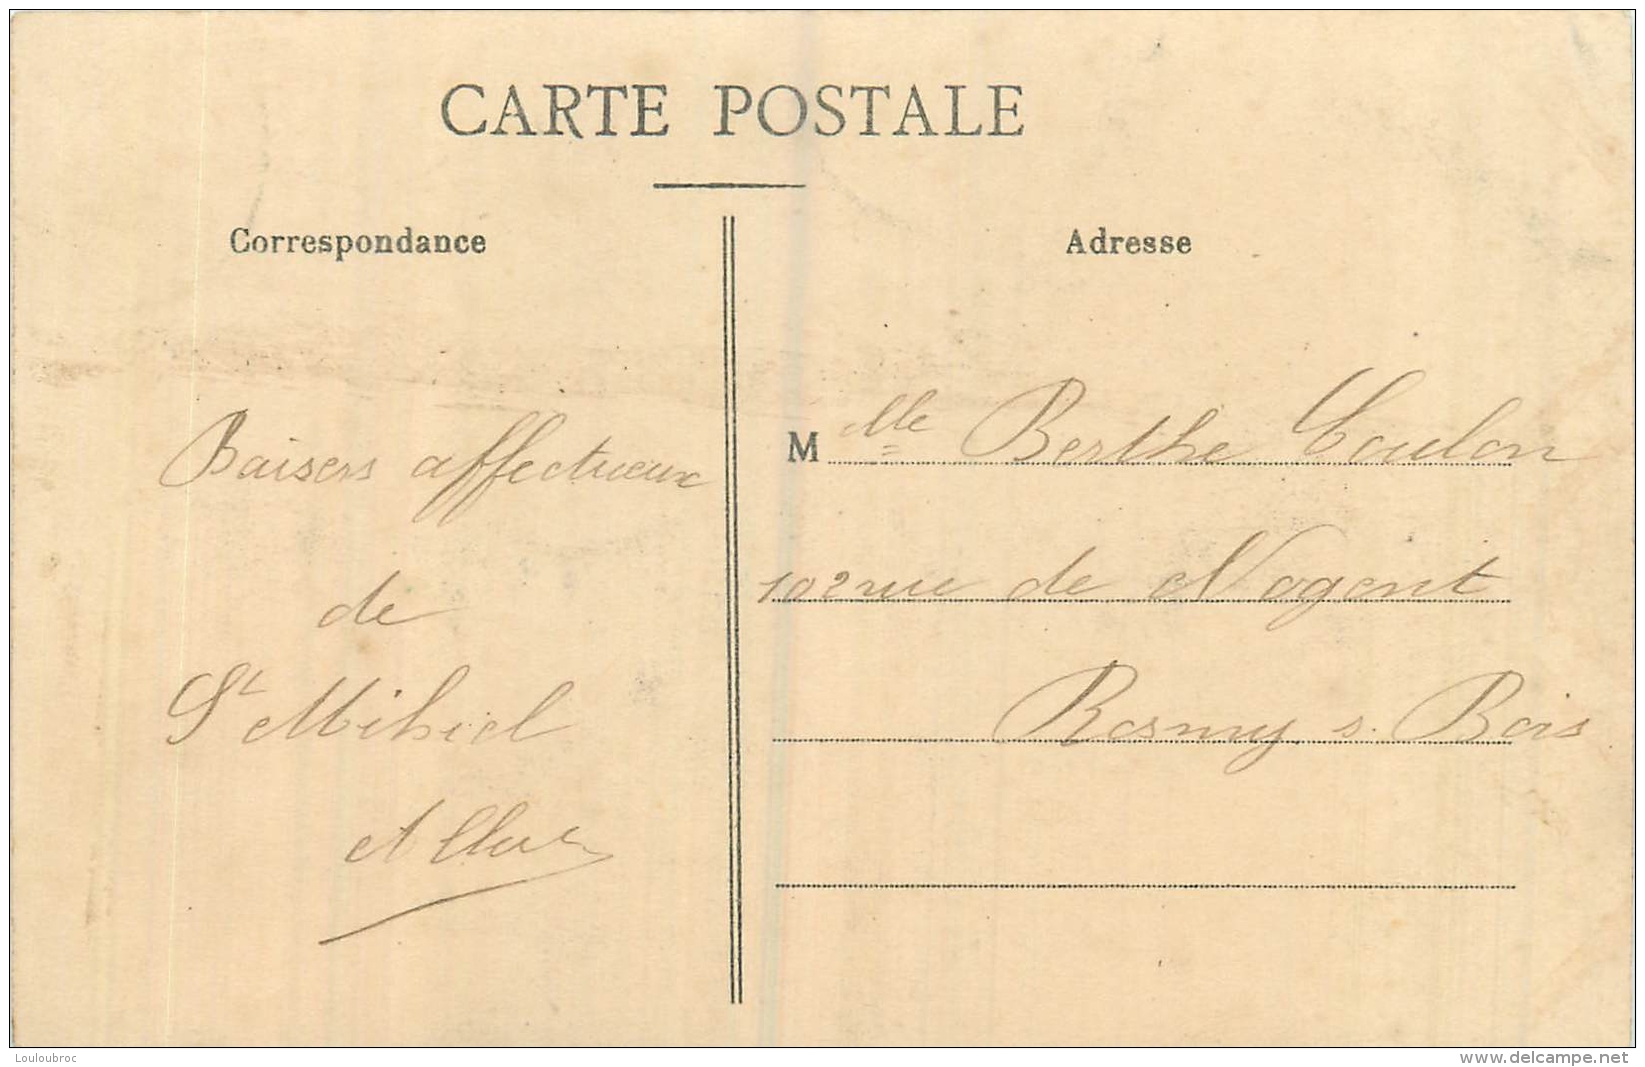 CARTE POSTALE
Correspondance
Adresse
Baisers affectueux
de
St Mihiel
Mlle Berthe Coulon
102 rue de Nogent
Rosny s. Bois
Louloubroc
www.delcampe.net